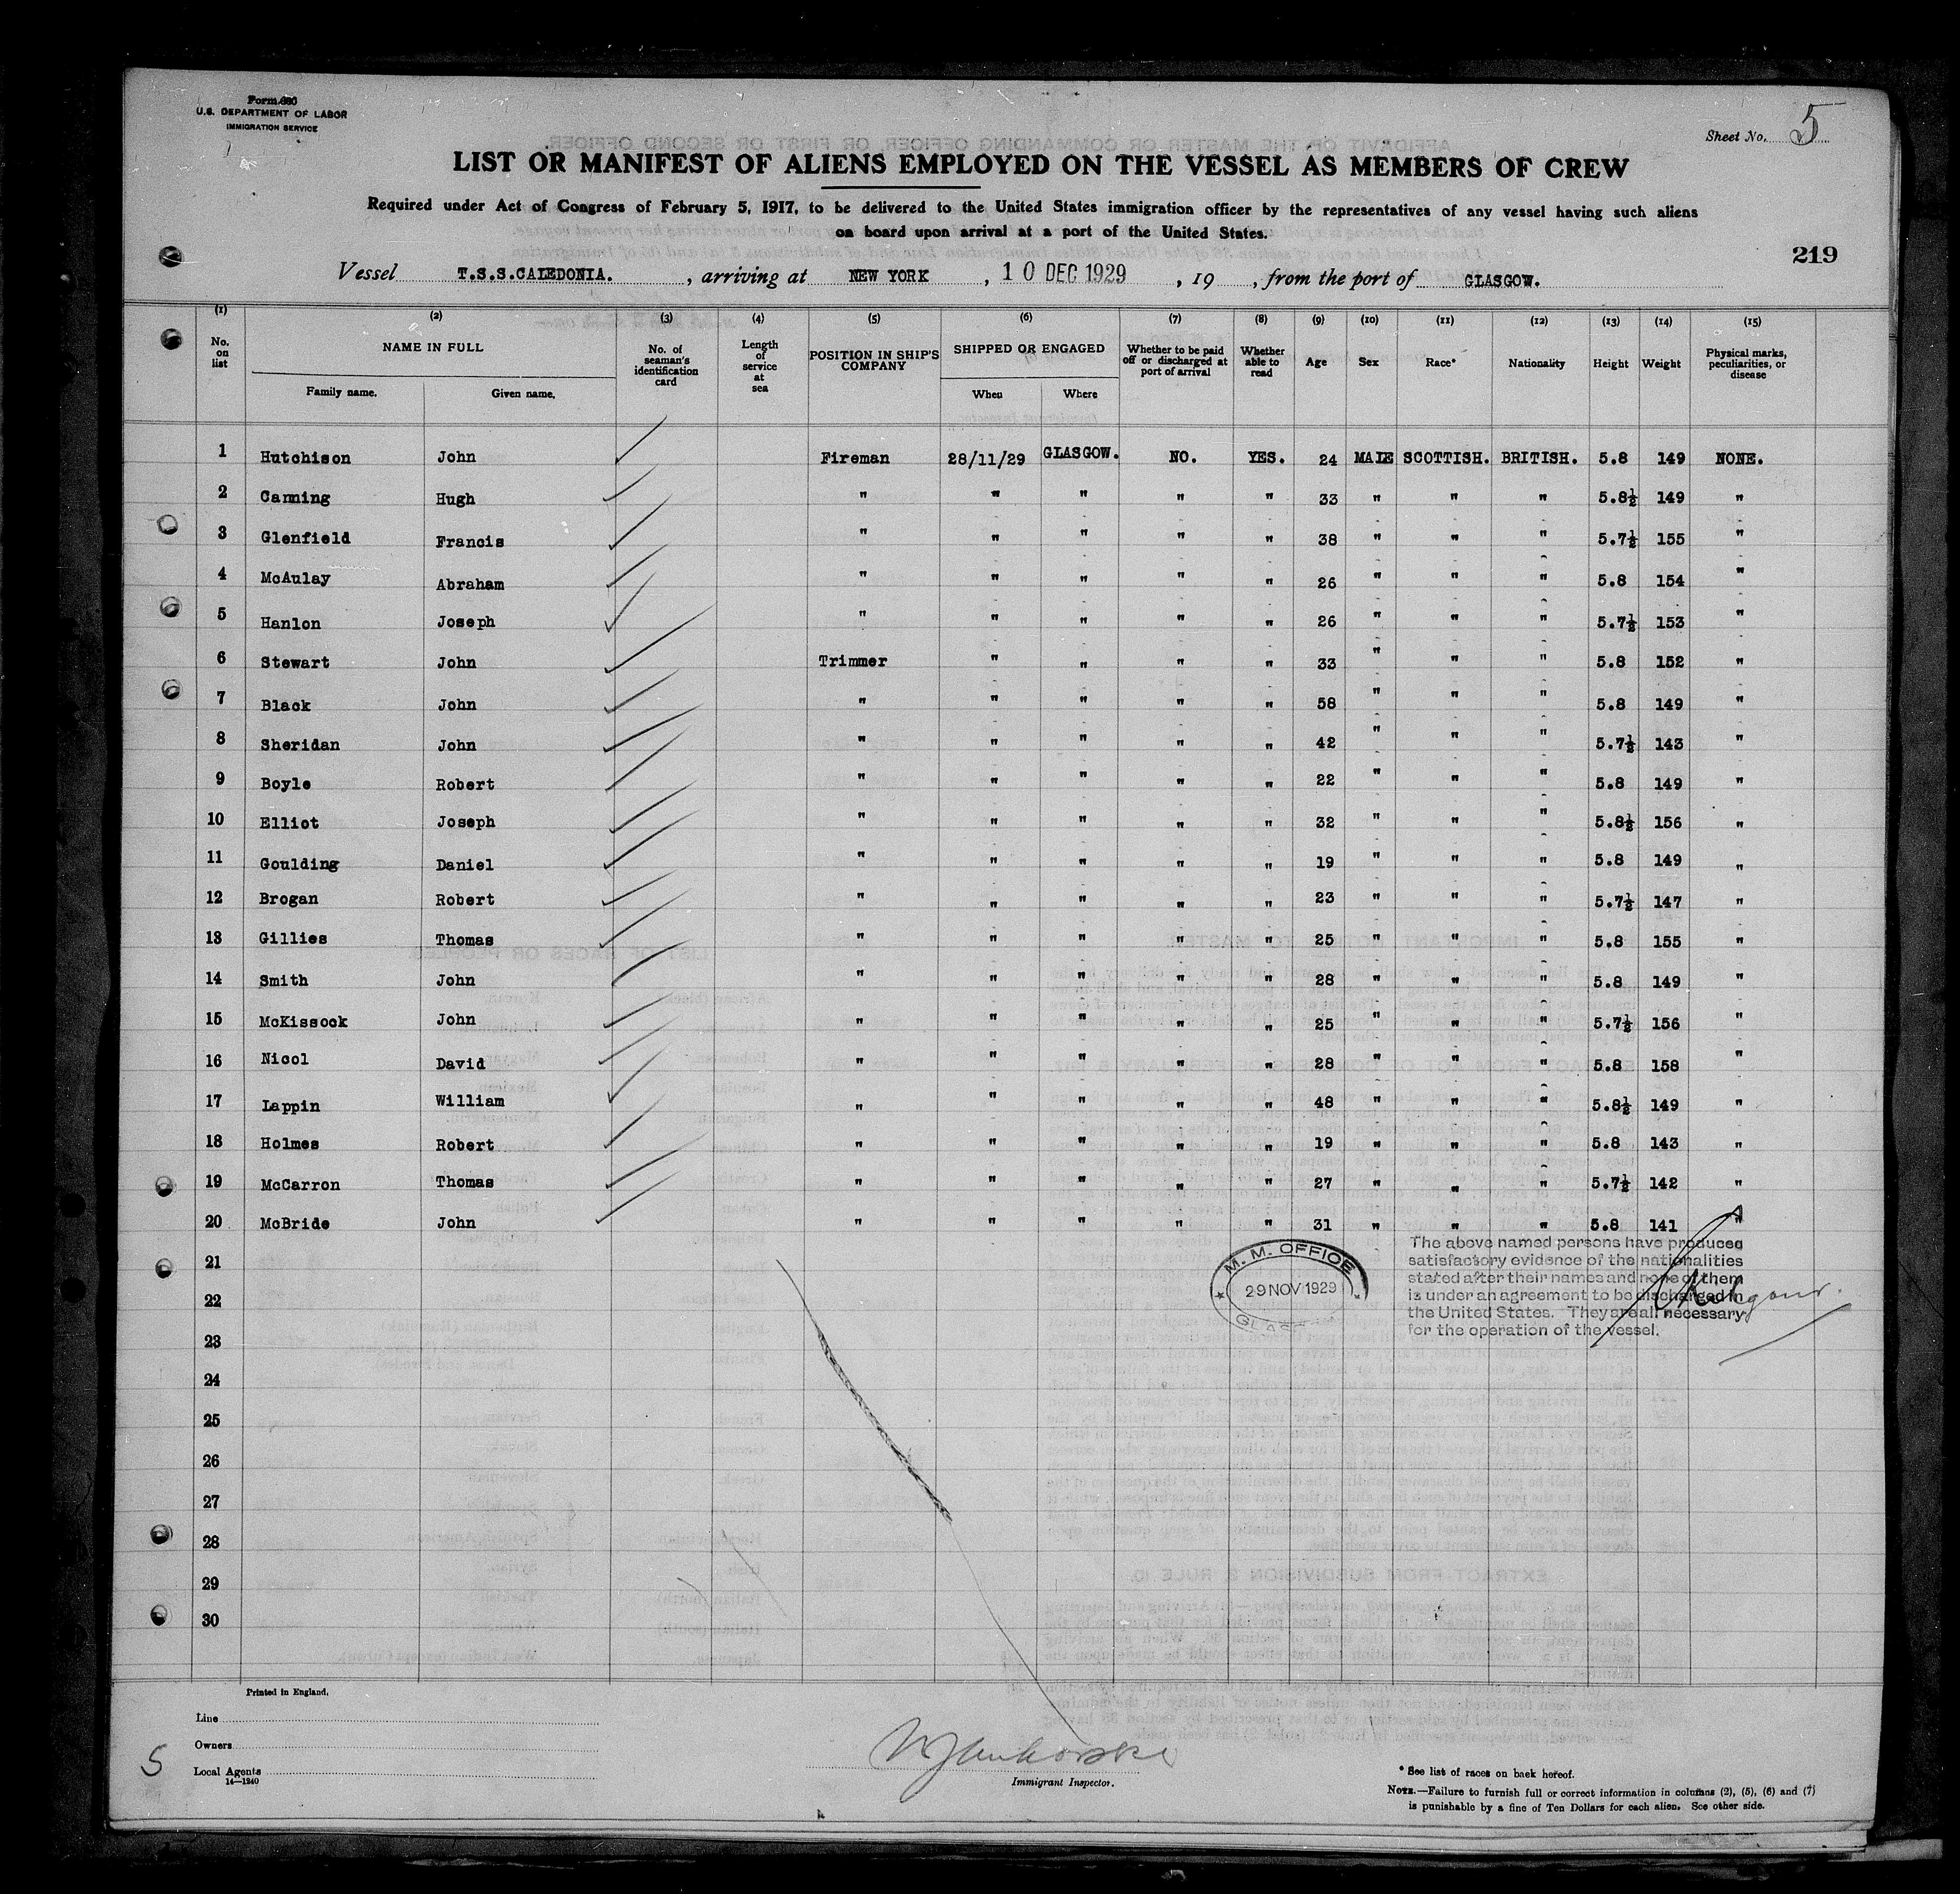 Form 680
U.S. DEPARTMENT OF LABOR
IMMIGRATION SERVICE
Sheet No. 5
LIST OR MANIFEST OF ALIENS EMPLOYED ON THE VESSEL AS MEMBERS OF CREW
Required under Act of Congress of February 5, 1917, to be delivered to the United States immigration officer by the representatives of any vessel having such aliens
on board upon arrival at a port of the United States.
219
Vessel T.S.S.CALEDONIA. , arriving at NEW YORK , 10 DEC 1929 , 19 , from the port of GLASGOW.
(1) (2) (3) (4) (5) (6) (7) (8) (9) (10) (11) (12) (13) (14) (15)
No. on list NAME IN FULL No. of seaman's identification card Length of service at sea POSITION IN SHIP'S COMPANY SHIPPED OR ENGAGED Whether to be paid off or discharged at port of arrival Whether able to read Age Sex Race* Nationality Height Weight Physical marks, peculiarities, or disease
Family name. Given name. When Where
1 Hutchison John Fireman 28/11/29 GLASGOW. NO. YES. 24 MALE SCOTTISH. BRITISH. 5.8 149 NONE.
2 Canning Hugh " " " " " 33 " " " 5.8½ 149 "
3 Glenfield Francis " " " " " 38 " " " 5.7½ 155 "
4 McAulay Abraham " " " " " 26 " " " 5.8 154 "
5 Hanlon Joseph " " " " " 26 " " " 5.7½ 153 "
6 Stewart John Trimmer " " " " 33 " " " 5.8 152 "
7 Black John " " " " " 58 " " " 5.8 149 "
8 Sheridan John " " " " " 42 " " " 5.7½ 143 "
9 Boyle Robert " " " " " 22 " " " 5.8 149 "
10 Elliot Joseph " " " " " 32 " " " 5.8½ 156 "
11 Goulding Daniel " " " " " 19 " " " 5.8 149 "
12 Brogan Robert " " " " " 23 " " " 5.7½ 147 "
13 Gillies Thomas " " " " " 25 " " " 5.8 155 "
14 Smith John " " " " " 28 " " " 5.8 149 "
15 McKissock John " " " " " 25 " " " 5.7½ 156 "
16 Nicol David " " " " " 28 " " " 5.8 158 "
17 Lappin William " " " " " 48 " " " 5.8½ 149 "
18 Holmes Robert " " " " " 19 " " " 5.8 143 "
19 McCarron Thomas " " " " " 27 " " " 5.7½ 142 "
20 McBride John " " " " " 31 " " " 5.8 141 "
21
22
23
24
25
26
27
28
29
30
M. M. OFFICE
29 NOV 1929
The above named persons have produced
satisfactory evidence of the nationalities
stated after their names and none of them
is under an agreement to be discharged in
the United States. They are all necessary
for the operation of the vessel.
Printed in England.
Line
Owners
Local Agents
14—1240
5
Immigrant Inspector.
* See list of races on back hereof.
NOTE.—Failure to furnish full or correct information in columns (2), (5), (6) and (7)
is punishable by a fine of Ten Dollars for each alien. See other side.